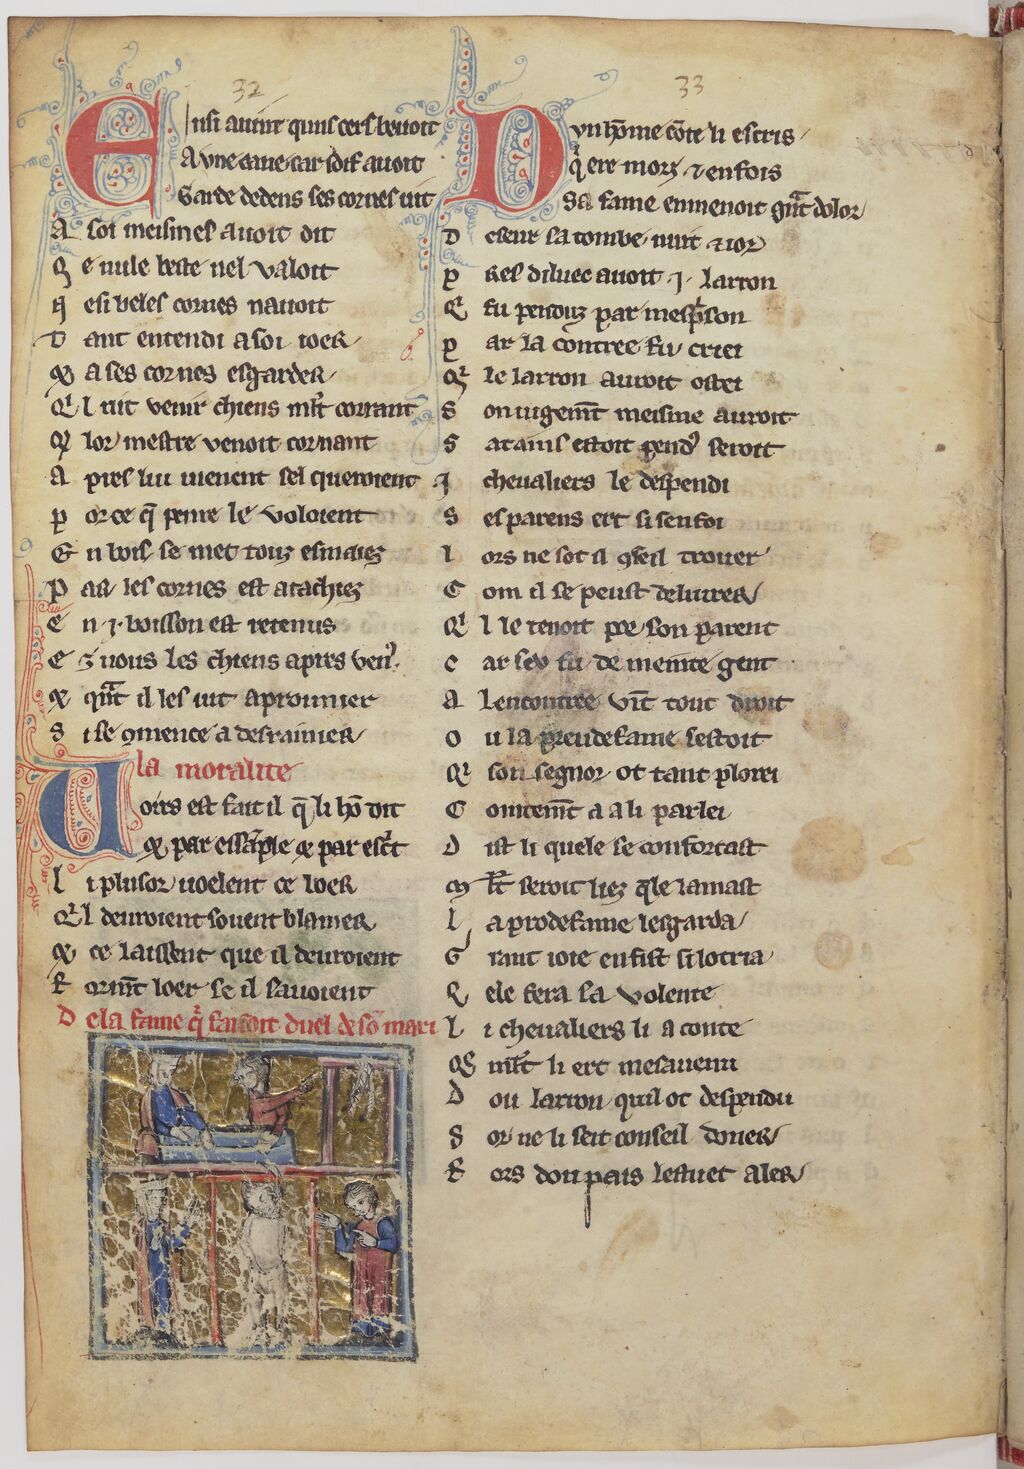 32
Ensi avint quns cers bevoit
A une eaue car soif avoit
Garde dedens ses cornes vit
A soi meismes avoit dit
Q e nule beste nel valoit
Q esi beles cornes navoit
T ant entendi a soi loer
& a ses cornes esgarder
Q'l vit venir chiens mlt corrant
Q' lor mestre venoit cornant
A pres lui vienent sel queroient
P or ce q penre le voloient
E n bois se met touz esmaiez
P ar les cornes est atachiez
E n .j. boisson est retenus
E z vous les chiens apres ven9
& qnt il les vit aproimier
S i se 9mence a desrainier
la moralite
Voirs est fait il q li hom dit
& par essample & par escrit
L i plusor voelent ce loer
Q'l devroient sovent blamer
& ce laissent que il devroient
F orment loer se il savoient
D e la fame q faisoit duel de son mari
33
D un home conte li escris
q ere morz & enfois
Sa fame enmenoit grant dolor
D eseur sa tombe nuit & ior
P res diluec avoit .j. larron
Q' fu penduz par mesprison
P ar la contree fu criei
Q' le larron auroit ostei
S on iugement meisme auroit
S atains estoit pendus seroit
J chevaliers le despendi
S es parens ert si senfoi
L ors ne sot il 9seil trover
C om il se peust delivrer
Q'l le tenoit por son parent
C ar sev fu de meinte gent
A lencontree vint tout droit
O u la preudefame sestoit
Q' son segnor ot tant plorei
C ointement a a li parlei
D ist li quele se confortast
M lt seroit liez qle lamast
L a prodefame lesgarda
G rant ioie en fist si lotria
Q ele fera sa volente
L i chevaliers li a conte
Q mlt li ert mesavenu
D ou larron quil ot despendu
S or ne li seit conseil doner
F ors dou pais lestuet aler